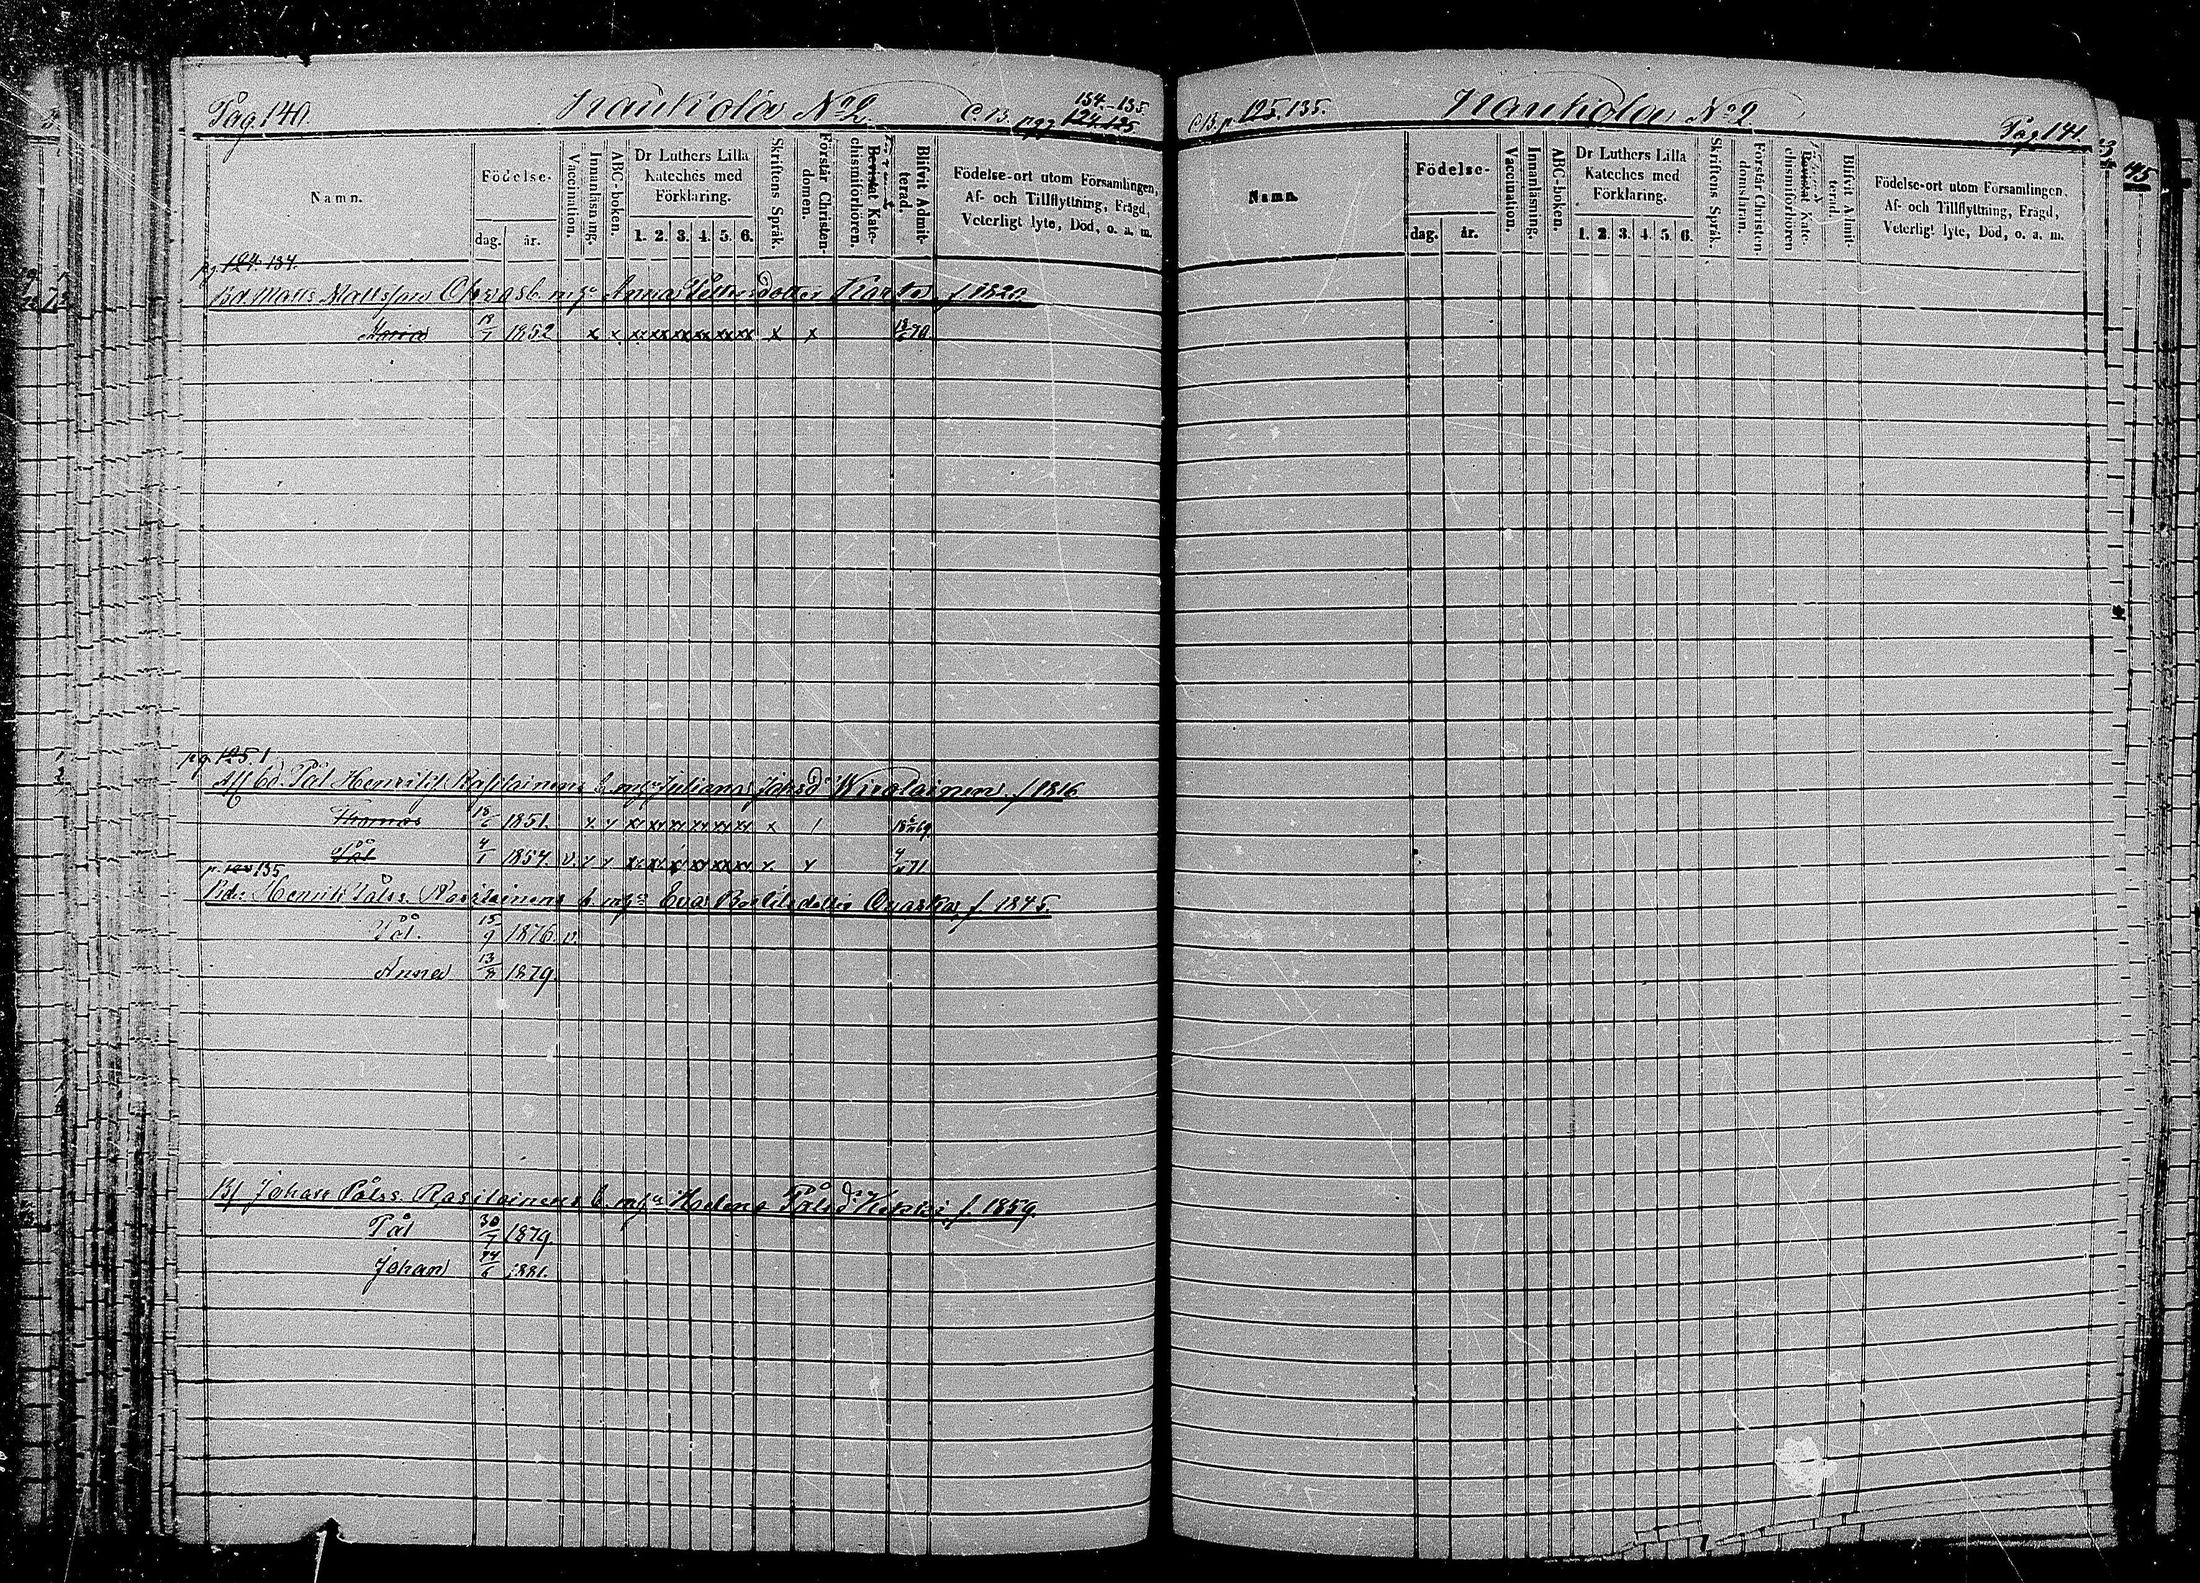 Pag. 140. Kaukola No 2. C.B. pgg 124.125 134-135
Namn. Födelse- dag. år. Vaccination. Innanläsning. ABC-boken. Dr Luthers Lilla Kateches med Förklaring. 1. 2. 3. 4. 5. 6. Skriftens Språk. Förstår Christendomen. Bevistat Katechismiförhören. Blifvit Admitterad. Födelse-ort utom Församlingen, Af- och Tillflyttning, Frägd, Veterligt lyte, Död, o. a. m.
pg. 124. 134.
Bd. Matts Mattsson mga Anna Petersdotter f 1820.
Maria 1852 x x xx xx xx xx xx xx x x 70.
pg. 125. 1
Af bd. Pål Henrikss. Rasilainens b. mga Juliana Johsdr Wirolainen. f 1816
Thomas 18/6 1851. x x x 69
Pål 4/1 1854. v. 71.
p. 125 135
Bd: Henrik Pålss. Rasilainens b. mga Eva f. 1845.
Pål. 15/9 1876 v.
Anna 13/8 1879.
Bf Johan Pålss. Rasilainens b. mga Helena Pålsdr f. 1859.
Pål 30/7 1879.
Johan 24/6 1881.
C.B. p. 125. 135. Kaukola No 2 Pag. 141.
Namn. Födelse- dag. år. Vaccination. Innanläsning. ABC-boken. Dr Luthers Lilla Kateches med Förklaring. 1. 2. 3. 4. 5. 6. Skriftens Språk. Förstår Christendomsläran. Bevistat Katechismiförhören Blifvit Admitterad. Födelse-ort utom Församlingen, Af- och Tillflyttning, Frägd, Veterligt lyte, Död, o. a. m.
145